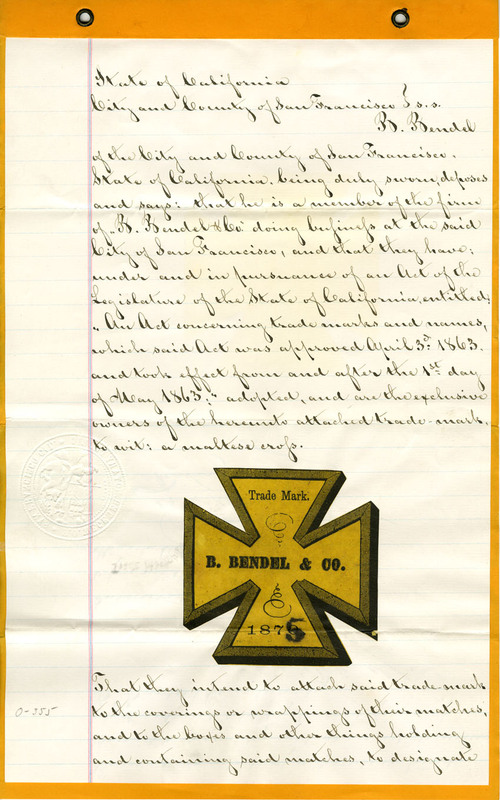 State of California
City and County of San Francisco } s.s.
B. Bendel
of the City and County of San Francisco.
State of California. being duly sworn, deposes
and says: that he is a member of the firm
of „B. Bendel & Co" doing businefs at the said
City of San Francisco, and that they have;
under and in pursuance of an Act of the
Legislature of the State of California, entitled;
„An Act concerning trade marks and names,
which said Act was approved April 3d. 1863.
and took effect from and after the 1st day
of May 1863;" adopted, and are the exclusive
owners of the hereunto attached trade-mark,
to wit: a maltese crofs.
Trade Mark.
B. BENDEL & CO.
1875
That they intend to attach said trade-mark
0-355
to the coverings or wrappings of their matches,
and to the boxes and other things holding
and containing said matches, to designate